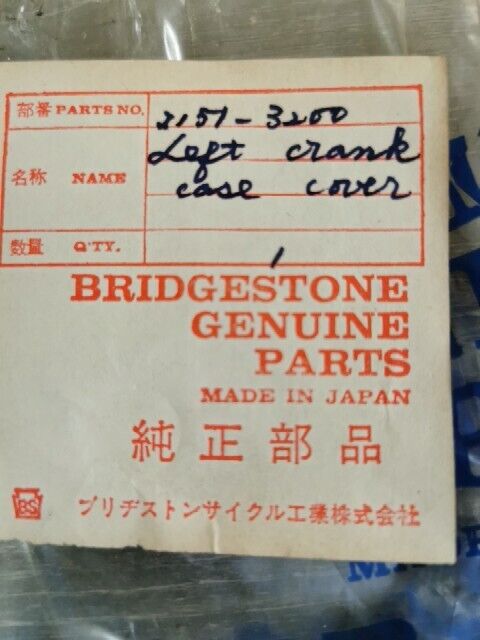 部番 PARTS NO. 2151-3200
名称 NAME Left crank
case cover
数量 Q'TY. 1
BRIDGESTONE
GENUINE
PARTS
MADE IN JAPAN
純正部品
BS ブリヂストンサイクル工業株式会社